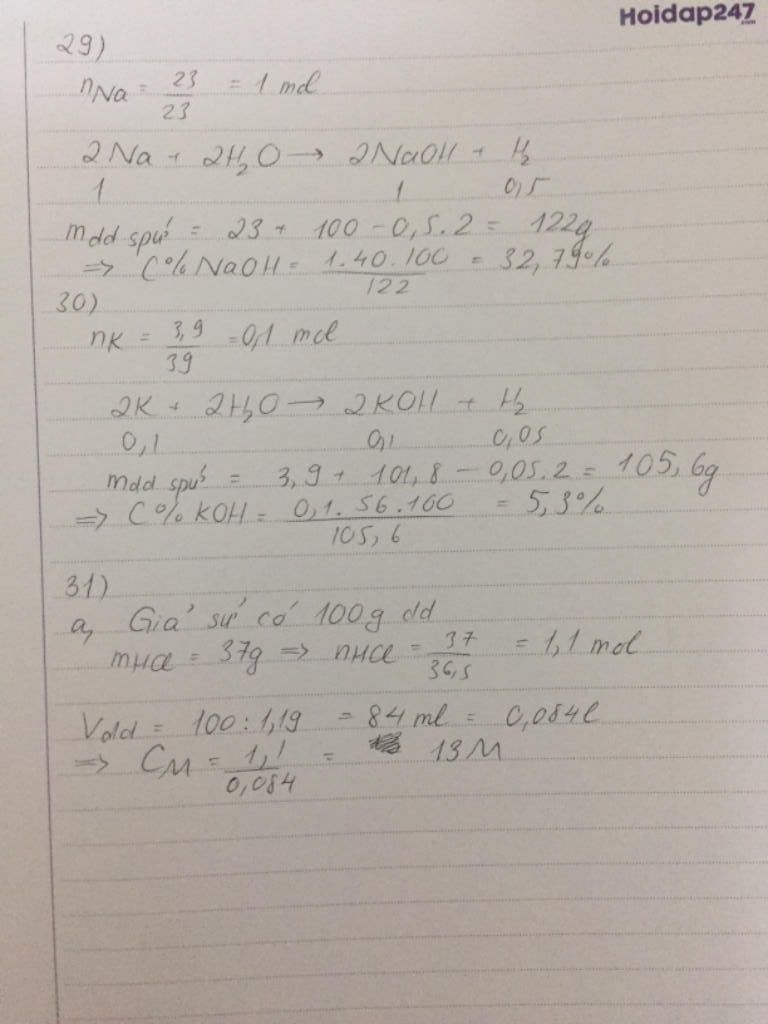 Hoidap247.com
29)
nNa = 23/23 = 1 mol
2Na + 2H₂O → 2NaOH + H₂
1 1 0,5
mdd spứ = 23 + 100 - 0,5.2 = 122g
=> C% NaOH = 1.40.100/122 = 32,79%
30)
nK = 3,9/39 = 0,1 mol
2K + 2H₂O → 2KOH + H₂
0,1 0,1 0,05
mdd spứ = 3,9 + 101,8 - 0,05.2 = 105,6g
=> C% KOH = 0,1.56.100/105,6 = 5,3%
31)
a, Giả sử có 100g dd
mHCl = 37g => nHCl = 37/36,5 = 1,1 mol
Vdd = 100:1,19 = 84 ml = 0,084l
=> CM = 1,1/0,084 = 13M